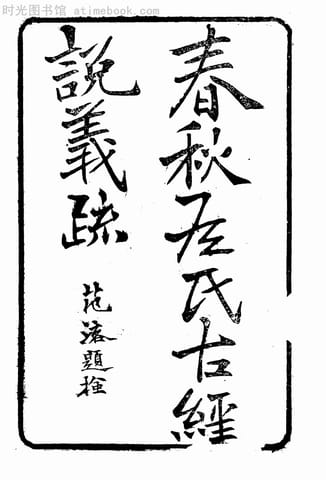 时光图书馆 atimebook.com
春秋左氏古經
說義疏
范滂題耑